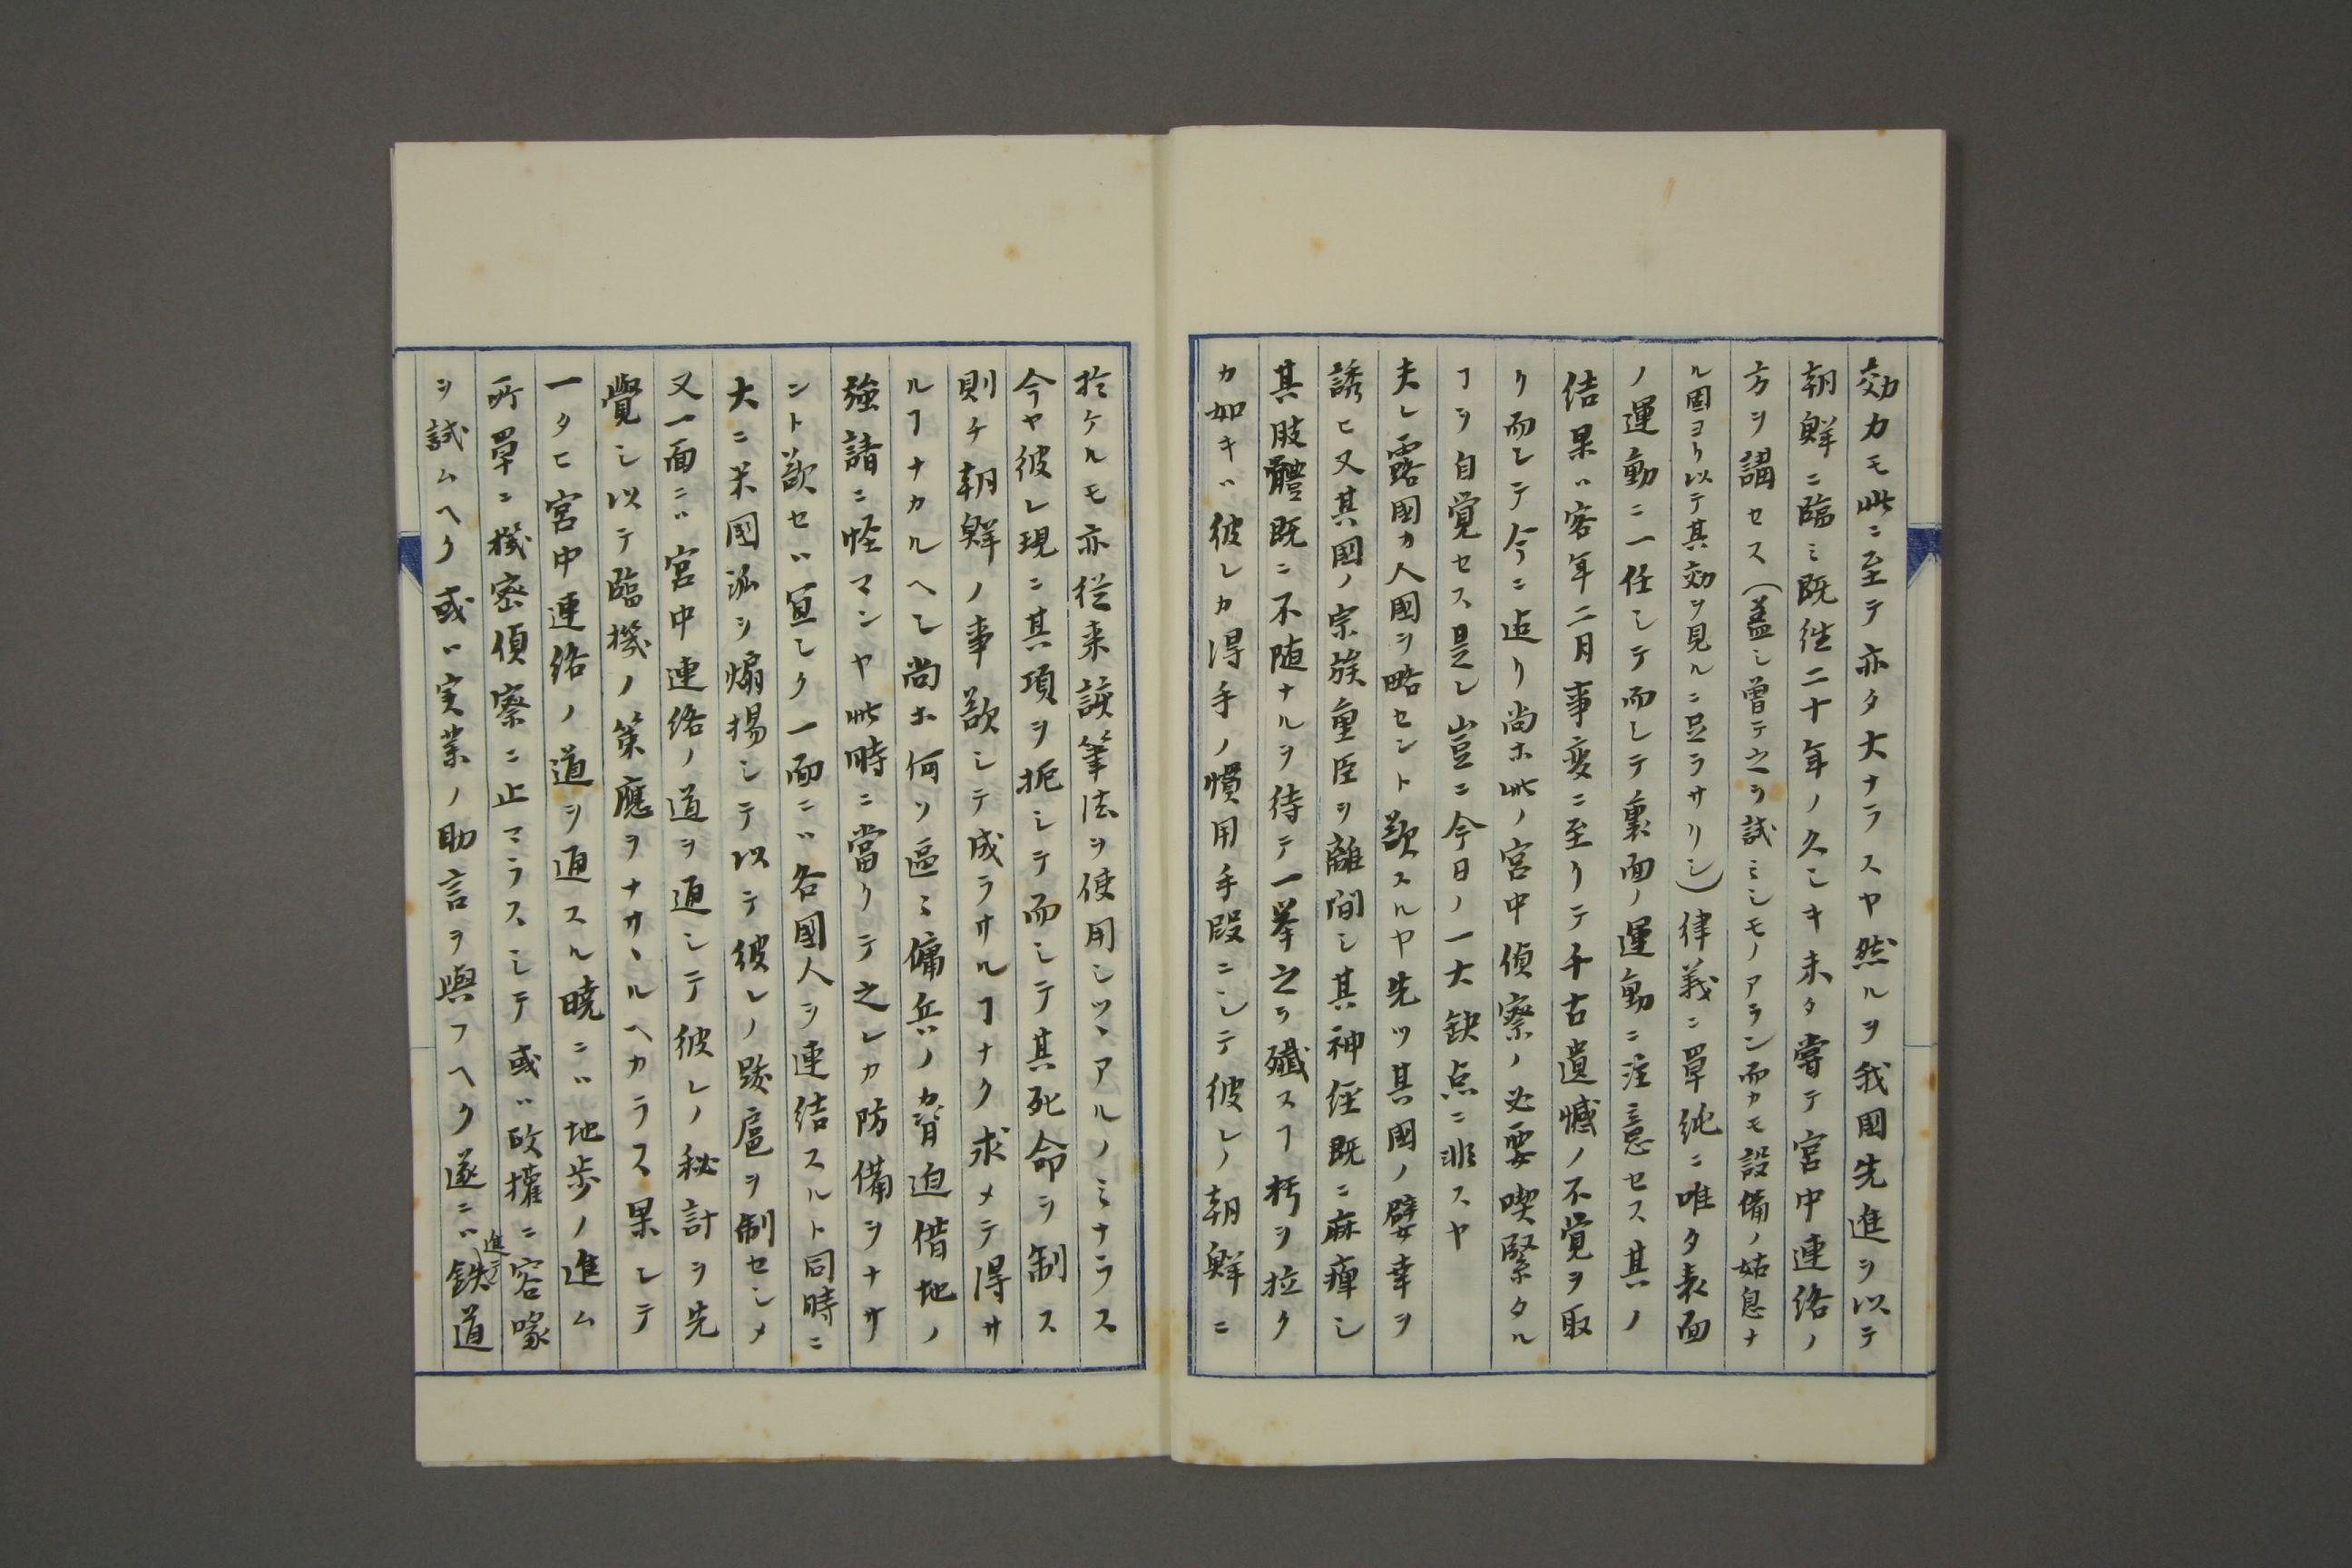 効力モ此ニ至テ亦タ大ナラスヤ然ルヲ我國先進ヲ以テ
朝鮮ニ臨ミ既徃二十年ノ久シキ未タ嘗テ宮中連絡ノ
方ヲ講セス(蓋シ曽テ之ヲ試ミシモノアラン而カモ設備ノ姑息ナ
ル固ヨリ以テ其効ヲ見ルニ足ラサリシ)律義ニ單純ニ唯タ表面
ノ運動ニ一任シテ而シテ裏面ノ運動ニ注意セス其ノ
結果ハ客年二月事変ニ至リテ千古遺憾ノ不覚ヲ取
リ而シテ今ニ迨リ尚ホ此ノ宮中偵察ノ必要喫緊タル
ヿヲ自覚セス是レ豈ニ今日ノ一大缺点ニ非スヤ
夫レ露國カ人國ヲ略セント欲スルヤ先ツ其國ノ嬖幸ヲ
誘ヒ又其國ノ宗族重臣ヲ離間シ其神経既ニ麻痺シ
其肢體既ニ不随ナルヲ待テ一挙之ヲ殲スヿ朽ヲ拉ク
カ如キハ彼レカ得手ノ慣用手段ニシテ彼レノ朝鮮ニ
於ケルモ亦従来該筆法ヲ使用シツヽアルノミナラス
今ヤ彼レ現ニ其項ヲ扼シテ而シテ其死命ヲ制ス
則チ朝鮮ノ事欲シテ成ラサルヿナク求メテ得サ
ルヿナカルヘシ尚ホ何ソ區々傭兵ノ脅迫借地ノ
強請ニ怪マンヤ此時ニ當リテ之レカ防備ヲナサ
ント欲セハ宜シク一面ニハ各國人ヲ連結スルト同時ニ
大ニ米國派ヲ煽揚シテ以テ彼レノ跋扈ヲ制セシメ
又一面ニハ宮中連絡ノ道ヲ通シテ彼レノ秘計ヲ先
覺シ以テ臨機ノ策應ヲナサヽルヘカラス果シテ
一タヒ宮中連絡ノ道ヲ通スル暁ニハ地歩ノ進ム
所單ニ機密偵察ニ止マラスシテ或ハ政權ニ容喙
ヲ試ムヘク或ハ実業ノ助言ヲ與フヘク遂ニハ進テ鉄道